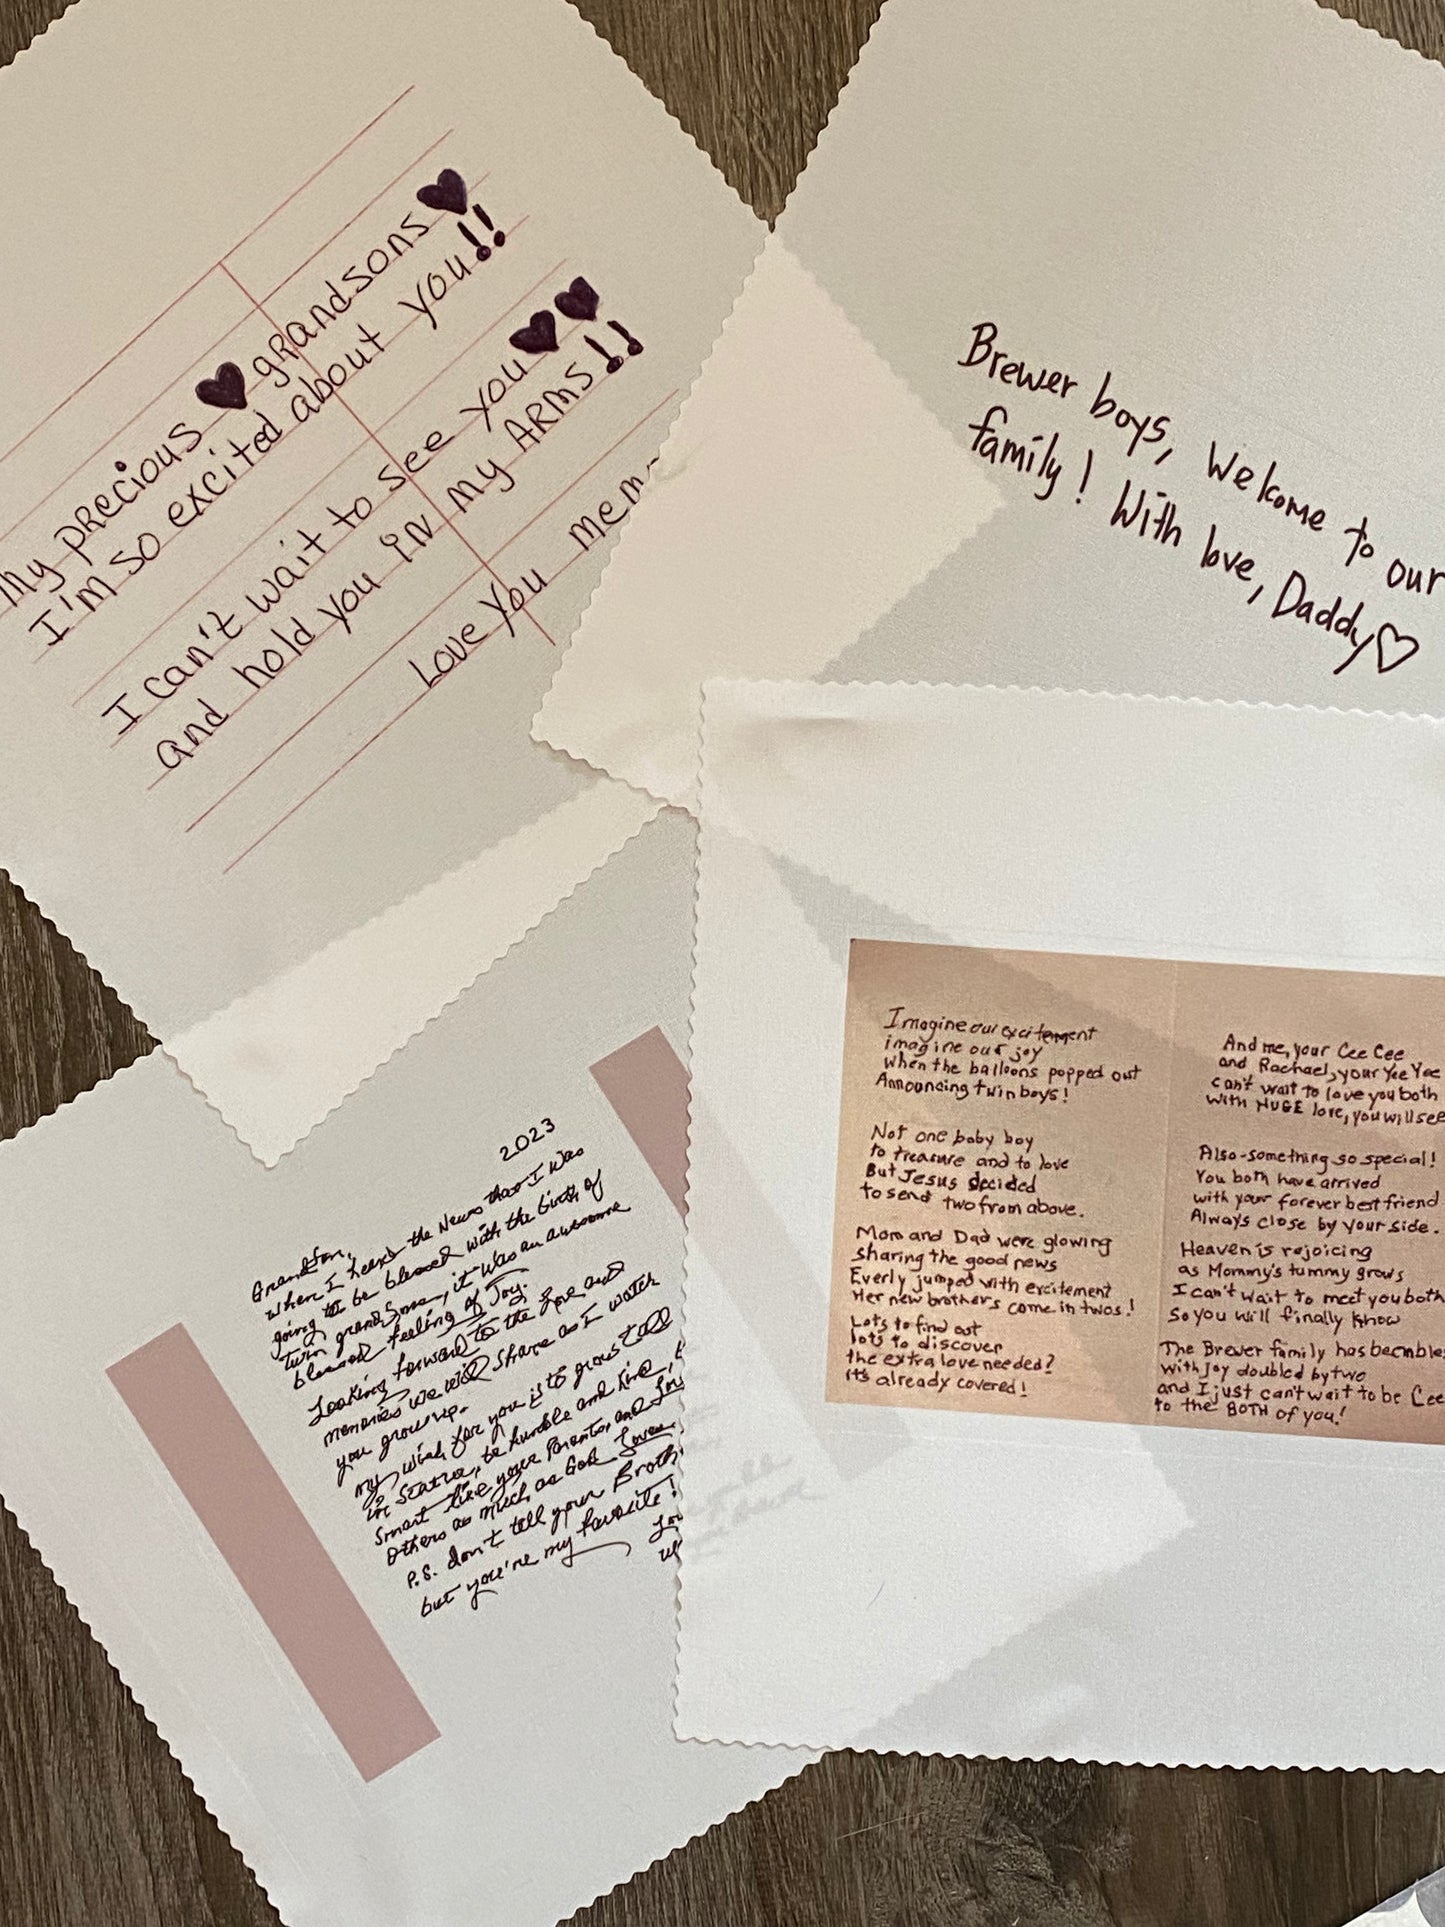 My precious grandsons
I'm so excited about you!!
I can't wait to see you
and hold you in my ARms!!
Love you mem
Brewer boys, Welcome to our
family! With love, Daddy
2023
Grandson,
When I heard the News that I was
going to be blessed with the birth of
twin grandsons, it was an awesome
blessed feeling of Joy.
Looking forward to the love and
memories we will share as I watch
you grow up.
my wish for you is to grow tall
in Stature, be humble and kind,
Smart like your Parents, and
Others as much as God Loves
P.S. don't tell your Broth
but you're my favorite!
Imagine our excitement
imagine our joy
when the balloons popped out
Announcing twin boys!
Not one baby boy
to treasure and to love
But Jesus decided
to send two from above.
Mom and Dad were glowing
sharing the good news
Everly jumped with excitement
Her new brothers come in twos!
Lots to find out
lots to discover
the extra love needed?
it's already covered!
And me, your Cee Cee
and Rachael, your Yee Yee
can't wait to love you both
with HUGE love, you will see
Also-something so special!
You both have arrived
with your forever best friend
Always close by your side.
Heaven is rejoicing
as Mommy's tummy grows
I can't wait to meet you both
So you will finally know
The Brewer family has been bles
with joy doubled by two
and I just can't wait to be Cee
to the BOTH of you!